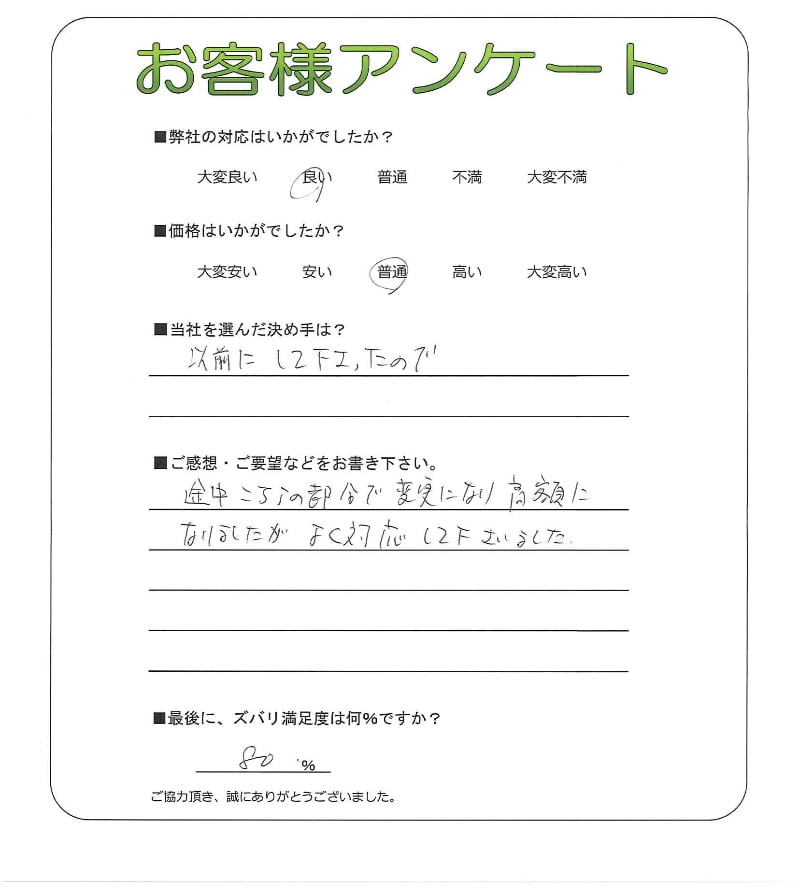 お客様アンケート
■弊社の対応はいかがでしたか？
大変良い 良い 普通 不満 大変不満
■価格はいかがでしたか？
大変安い 安い 普通 高い 大変高い
■当社を選んだ決め手は？
以前に して下さったので
■ご感想・ご要望などをお書き下さい。
途中こちらの部分で変更になり高額に
なりましたが よく対応して下さいました.
■最後に、ズバリ満足度は何%ですか？
80 %
ご協力頂き、誠にありがとうございました。